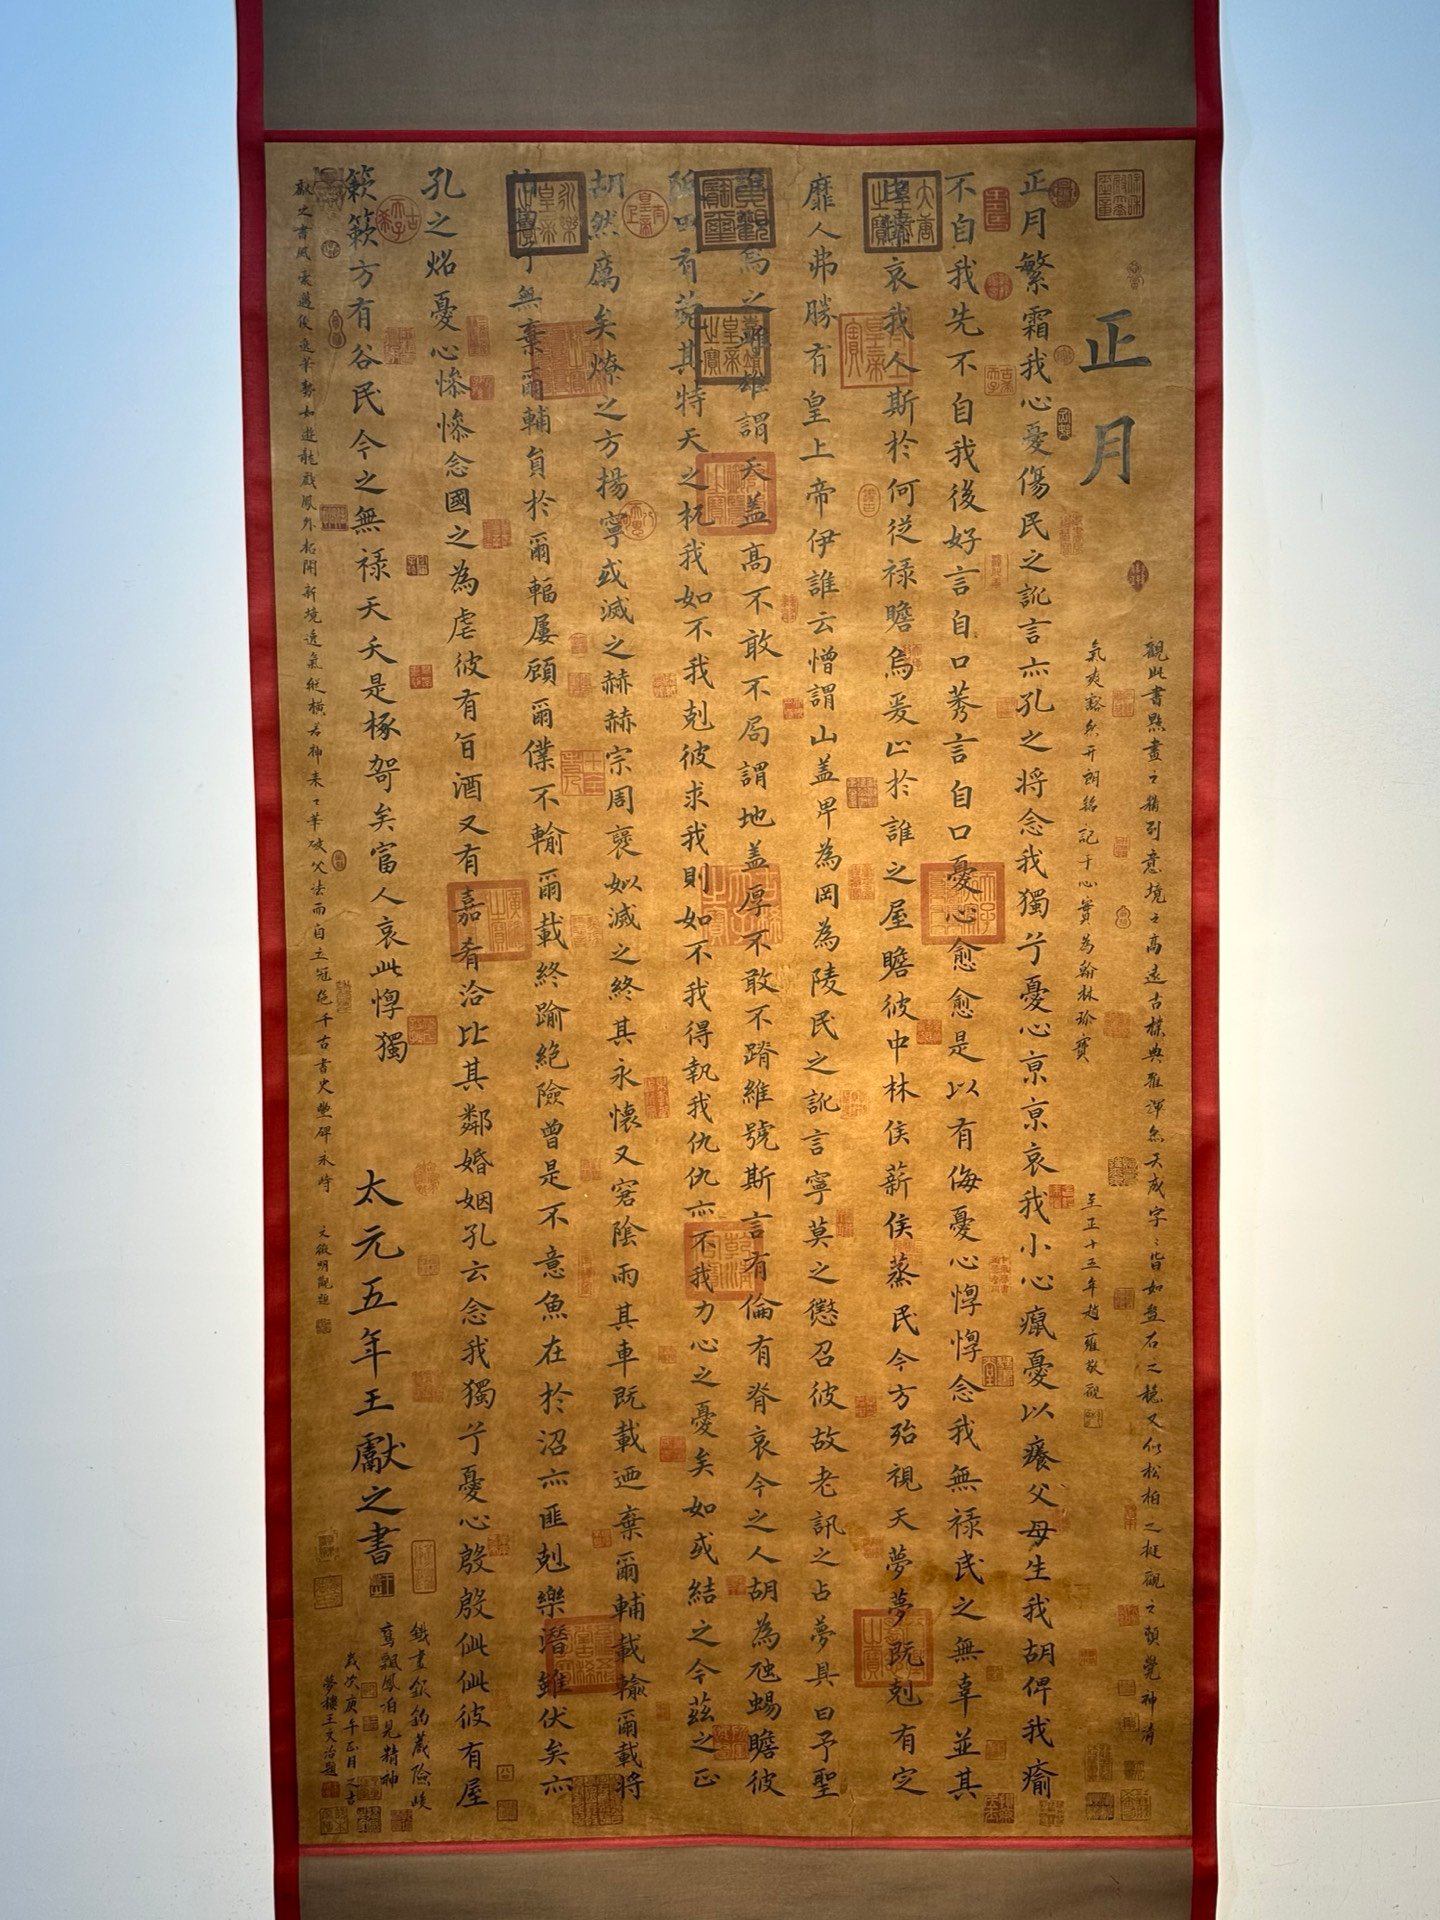 觀此書點畫之精到意境之高遠古樸典雅渾然天成字字皆如盤石之穩又似松柏之挺觀之頓覺神清
氣爽豁然開朗銘記于心實為翰林珍寶 至正十三年趙雍敬觀
正月
正月繁霜我心憂傷民之訛言亦孔之將念我獨兮憂心京京哀我小心癙憂以癢父母生我胡俾我瘉
不自我先不自我後好言自口莠言自口憂心愈愈是以有侮憂心惸惸念我無祿民之無辜並其
哀我人斯於何從祿瞻烏爰止於誰之屋瞻彼中林侯薪侯蒸民今方殆視天夢夢既剋有定
靡人弗勝有皇上帝伊誰云憎謂山盖卑為岡為陵民之訛言寧莫之懲召彼故老訊之占夢具曰予聖
誰烏之雌雄謂天盖高不敢不局謂地盖厚不敢不蹐維號斯言有倫有脊哀今之人胡為虺蜴瞻彼
阪田有菀其特天之杌我如不我剋彼求我則如不我得執我仇仇亦不我力心之憂矣如或結之今茲之正
胡然厲矣燎之方揚寧或滅之赫赫宗周褒姒滅之終其永懷又窘陰雨其車既載迺棄爾輔載輸爾載將
予無棄爾輔員於爾輻屢顧爾僕不輸爾載終踰絕險曾是不意魚在於沼亦匪剋樂潛雖伏矣亦
孔之炤憂心慘慘念國之為虐彼有旨酒又有嘉肴洽比其鄰婚姻孔云念我獨兮憂心慇慇佌佌彼有屋
簌簌方有谷民今之無祿天夭是椓哿矣富人哀此惸獨
太元五年王獻之書
鐵畫銀鉤藏險峻
鸞飄鳳泊見精神
歲次庚午正月之吉
夢樓王文治題
獻之書風豪邁俊逸筆勢如遊龍戲鳳外拓開新境逸氣縱橫若神來之筆破父法而自立冠絕千古書史豐碑永峙 文徵明觀題